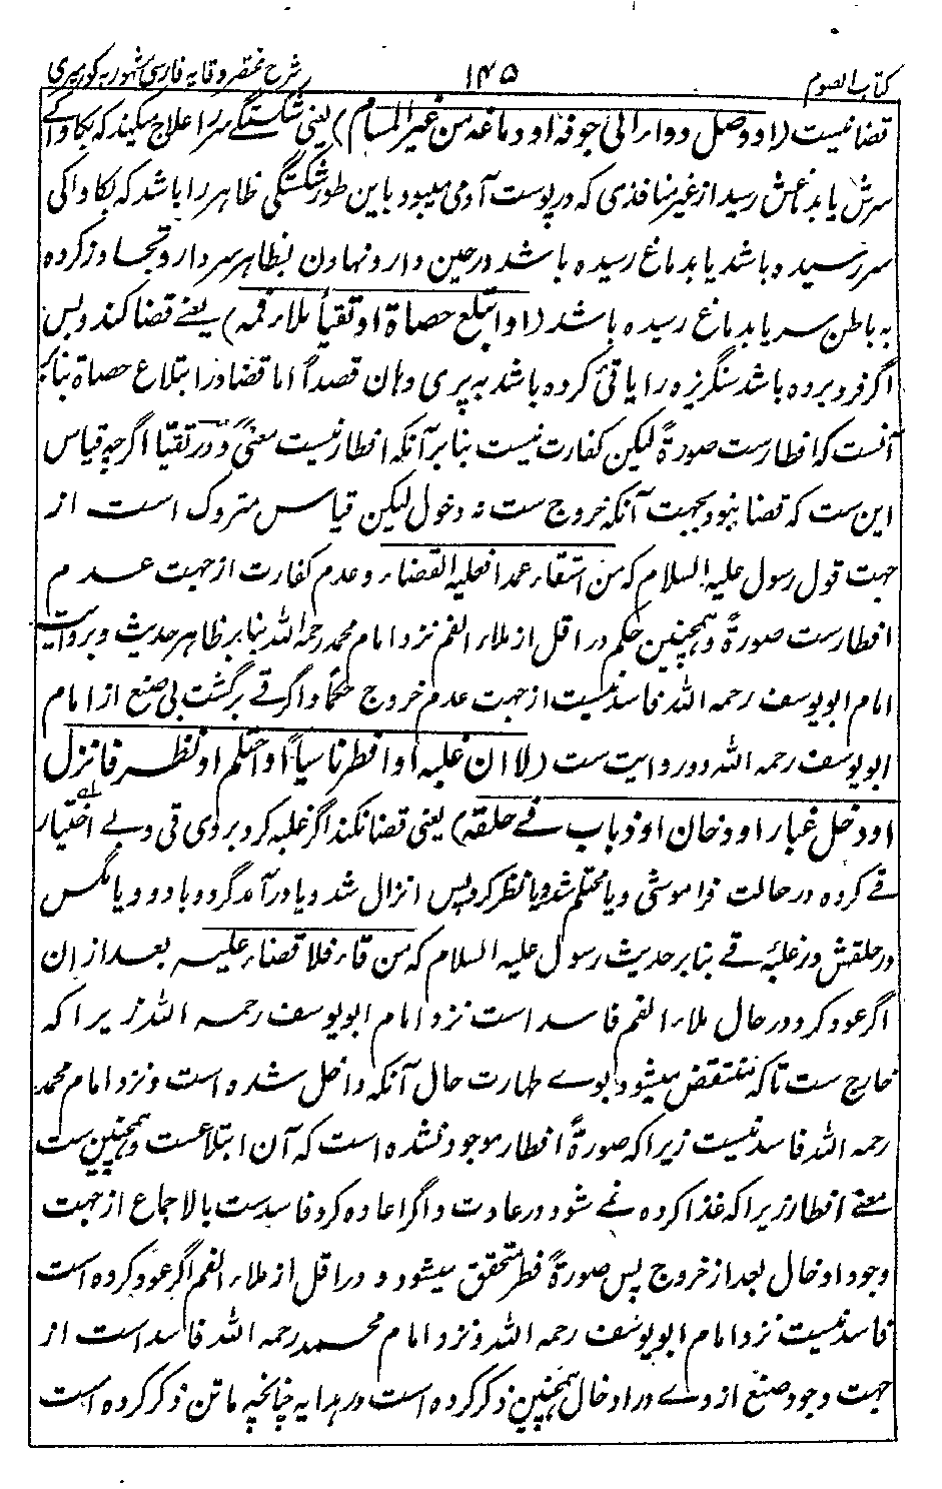 کتاب الصوم ۱۴۵ شرح مختصر وقایه فارسی مشهور به کور میری
قضا نیست (او وصل دواء الی جوفه او دماغه من غیر المسام) یعنی شکستگی سر را علاج میکنند که بکاواکے
سرش یا بدماغش رسید از غیر منافذی که در پوست آدمی میبود باین طور شکستگی ظاهر را باشد که بکاواکی
سر رسیده باشد یا بدماغ رسیده باشد در حین دارو نهادن بظاهر سر دارو تجاوز کرده
به باطن سر یا بدماغ رسیده باشد (او ابتلع حصاة او تقیأ ملاء فمه) یعنے قضا کند و بس
اگر فرو برده باشد سنگریزه را یا قئ کرده باشد به پری دهان قصداً اما قضا در ابتلاع حصاة بنابر
آنست که افطارست صورةً لیکن کفارت نیست بنابر آنکه افطار نیست معنیً و در تقیّا اگرچه قیاس
این ست که قضا نبود بجهت آنکه خروج ست نه دخول لیکن قیاس متروک است از
جهت قول رسول علیه السلام که من استقاء عمدا فعلیه القضاء و عدم کفارت از جهت عدم
افطارست صورةً و همچنین حکم در اقل از ملاء الفم نزد امام محمد رحمه الله بنابر ظاهر حدیث و بروایت
امام ابو یوسف رحمه الله فاسد نیست از جهت عدم خروج حکماً و اگر قے برگشت بی صنع از امام
ابو یوسف رحمه الله دو روایت ست (لا ان غلبه او افطر ناسیاً او احتلم او نظر فانزل
او دخل غبار او دخان او ذباب فے حلقه) یعنی قضا نکند اگر غلبه کرد بر وی قی و بے اختیار
قے کرده در حالت فراموشی و یا محتلم شد و یا نظر کرد پس انزال شد و یا در آمد گرد و یا دود و یا مگس
در حلقش و در غلبهٔ قے بنابر حدیث رسول علیه السلام که من قاء فلا قضاء علیه بعد از ان
اگر عود کرد در حال ملاء الفم فاسد است نزد امام ابو یوسف رحمه الله زیرا که
خارج ست تا که منتقض میشود بوے طهارت حال آنکه داخل شده است و نزد امام محمد
رحمه الله فاسد نیست زیرا که صورةً افطار موجود نشده است که آن ابتلاعست و همچنین ست
معنے افطار زیرا که غذا کرده نمے شود در عادت و اگر اعاده کرد فاسدست بالاجماع از جهت
وجود ادخال بعد از خروج پس صورةً فطر متحقق میشود و در اقل از ملاء الفم اگر عود کرده است
فاسد نیست نزد امام ابو یوسف رحمه الله و نزد امام محمد رحمه الله فاسد است از
جهت وجود صنع از وے در ادخال همچنین ذکر کرده است در هدایه چنانچه ماتن ذکر کرده است